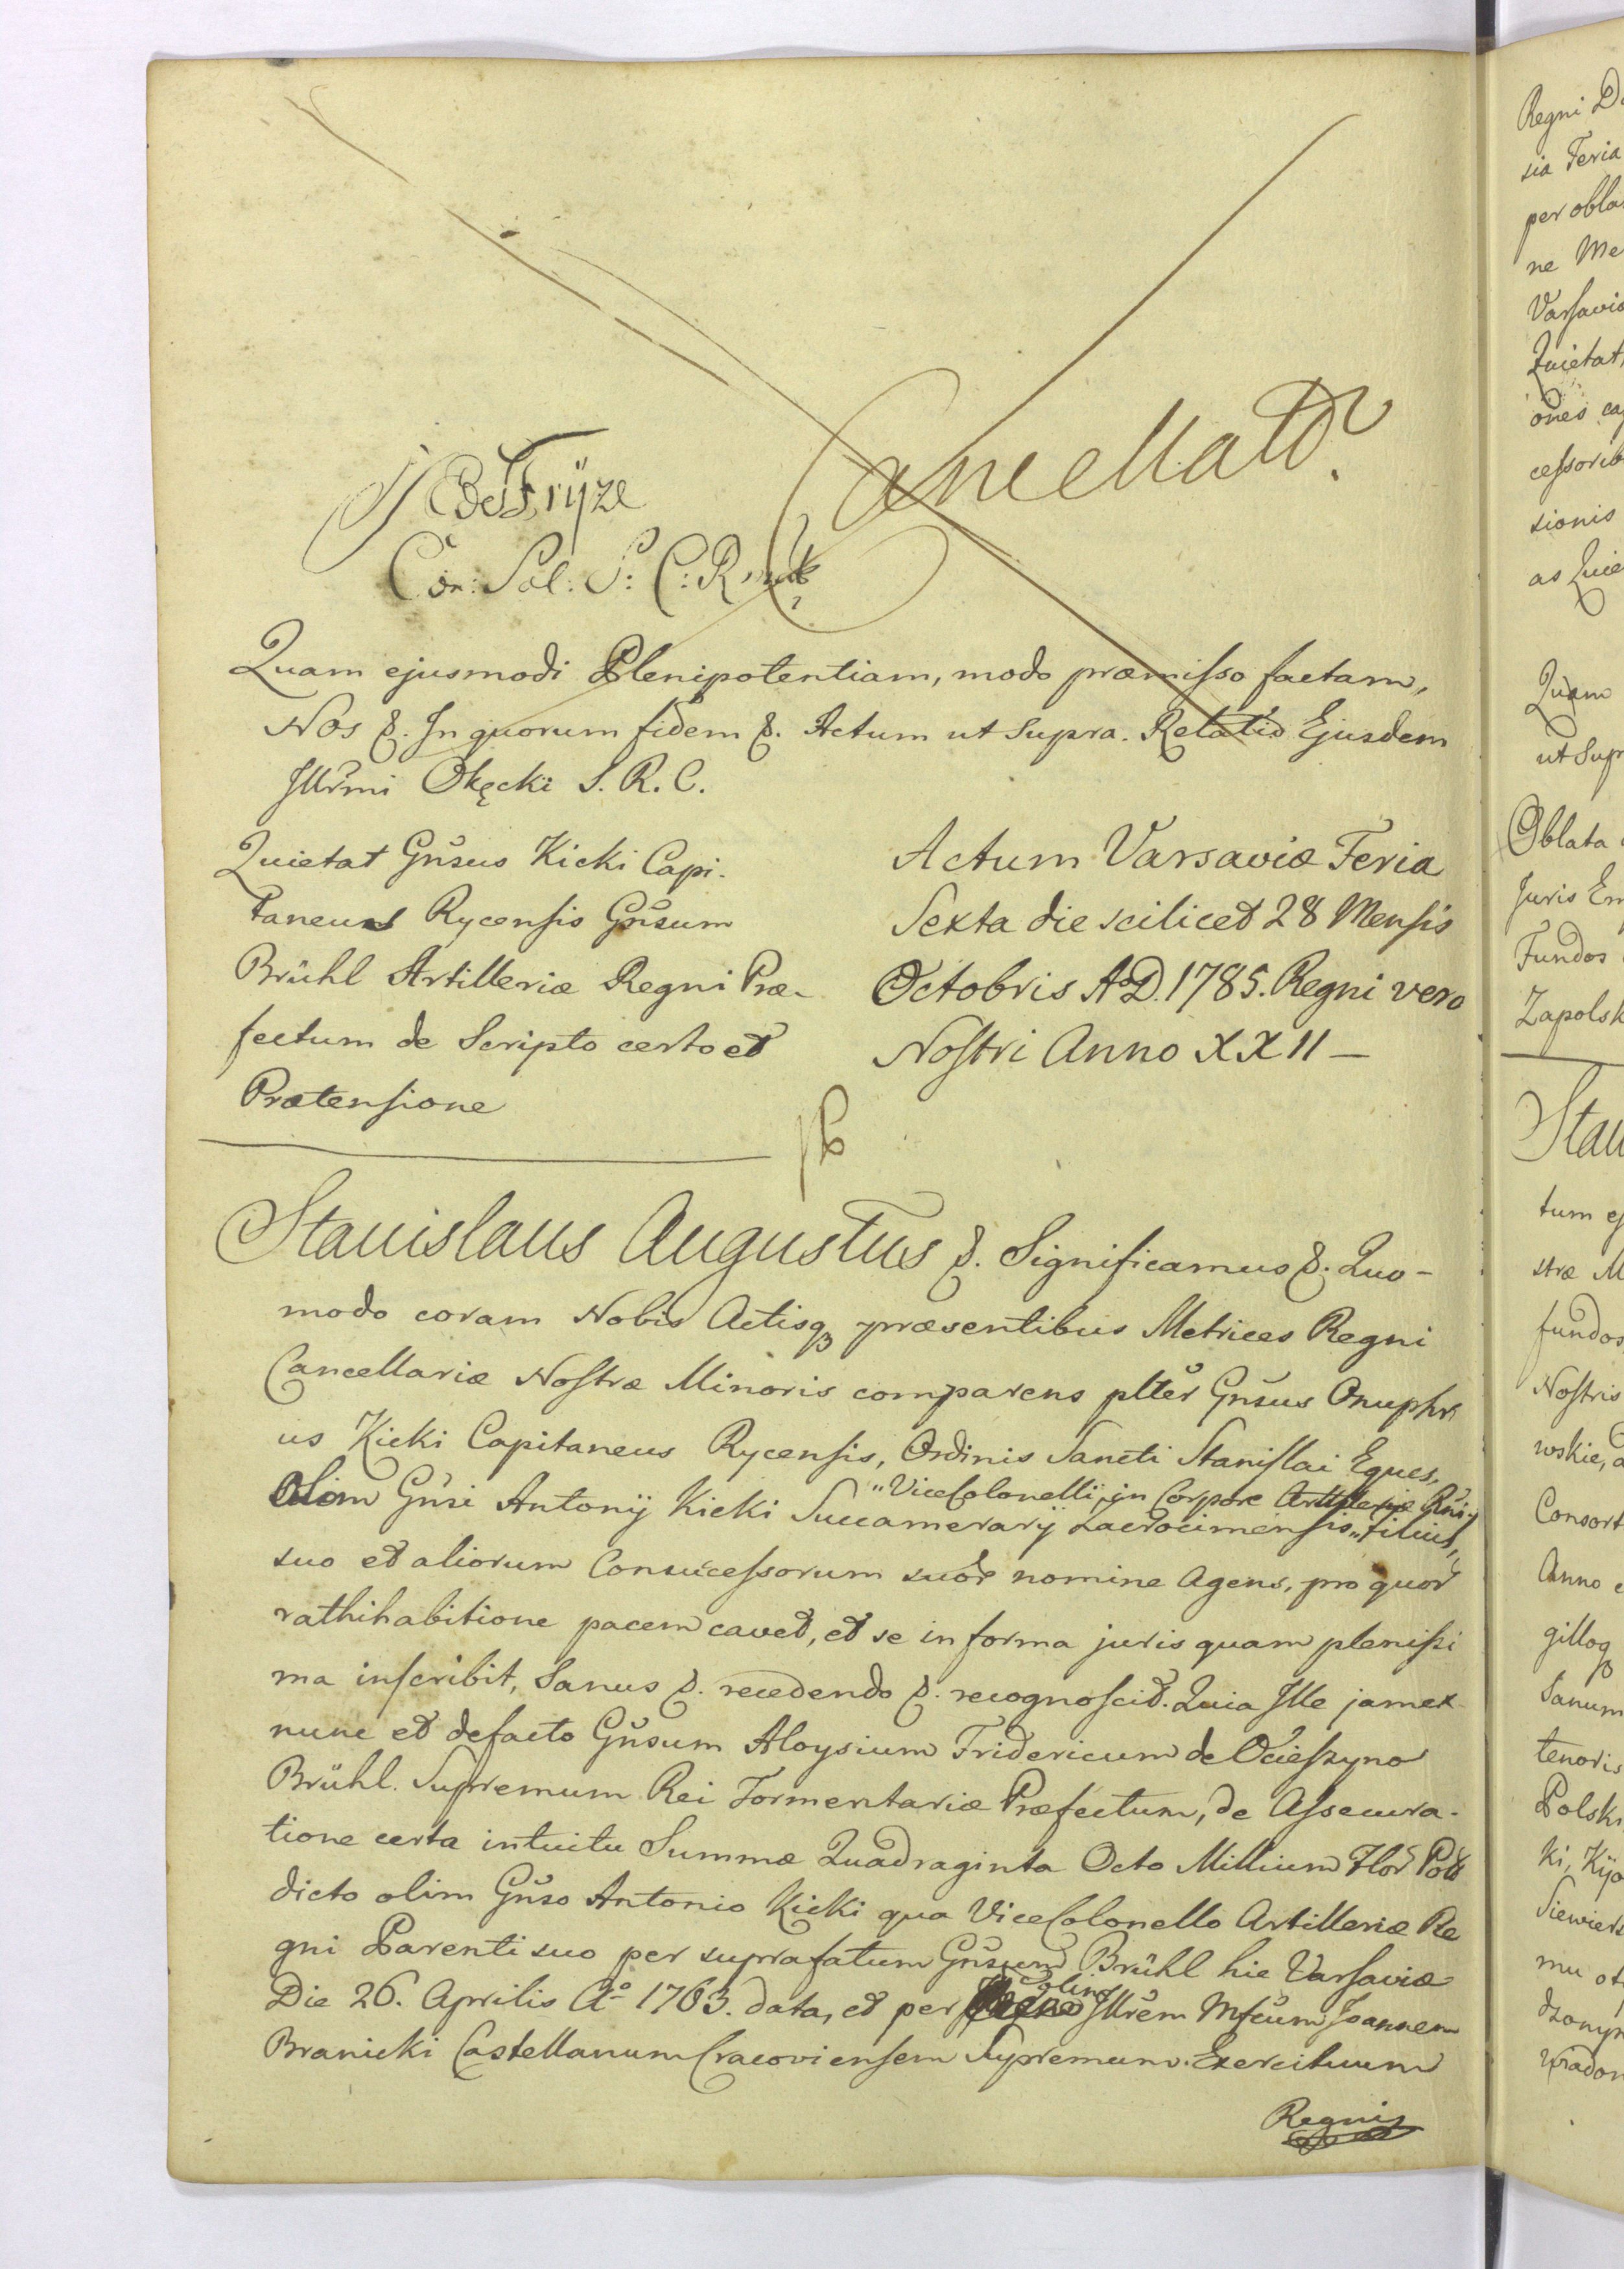 Cancellat
J de Fryze
Con: Pal: S: C: R
Quam ejusmodi Plenipotentiam, modo præmisso factam,
Nos &. In quorum fidem &. Actum ut supra. Relatio Ejusdem
Illrmi Okęcki S. R. C.
Quietat Gnsus Kicki Capi-
taneus Rycensis Gnsum
Brühl Artilleriæ Regni Præ-
fectum de Scripto certo et
Prætensione
Actum Varsaviæ Feria
Sexta die scilicet 28 Mensis
Octobris A.D. 1785. Regni vero
Nostri Anno XXII —
Stanislaus Augustus &. Significamus &. Quo-
modo coram Nobis Actisq præsentibus Metrices Regni
Cancellariæ Nostræ Minoris comparens pltter Gnsus Onuphri
us Kicki Capitaneus Rycensis, Ordinis Sancti Stanislai Eques,
"ViceColonelli, in Corpore Artilleriæ Rni"
Olim Gnsi Antonij Kicki Succamerarij Zacrocimensis "filius,
suo et aliorum Consuccessorum suor nomine Agens, pro quor
rathihabitione pacem cavet, et se in forma juris quam plenissi
ma inscribit, Sanus &. recedendo &. recognoscit. Quia Ille jam ex
nunc et defacto Gnsum Aloysium Fridericum de Ocieszyno
Brühl. Supremum Rei Tormentariæ Præfectum, de Assecura-
tione certa intuitu Summæ Quadraginta Octo Millium Flor Poll
dicto olim Gnso Antonio Kicki qua ViceColonello Artilleriæ Re
gni Parenti suo per suprafatum Gnsum Brühl hic Varsaviæ
Die 26. Aprilis Ao 1763. data, et per olim Illrem Mfcum Joannem
Branicki Castellanum Cracoviensem Supremum Exercituum
Regni
Regni
sia Feria
per obla
ne Me
Varsavia
Quietat,
ones ca
cessorib
sionis
as Quie
Quam
ut Supr
Oblata
Juris Em
Fundos
Zapolsk
Stan
tum ej
stræ M
fundos
Nostris
wskie,
Consort
Anno
gilloq
Sanum
tenoris
Polski
ki, Kijo
Siewiers
mu ot
dzonym
wiadom